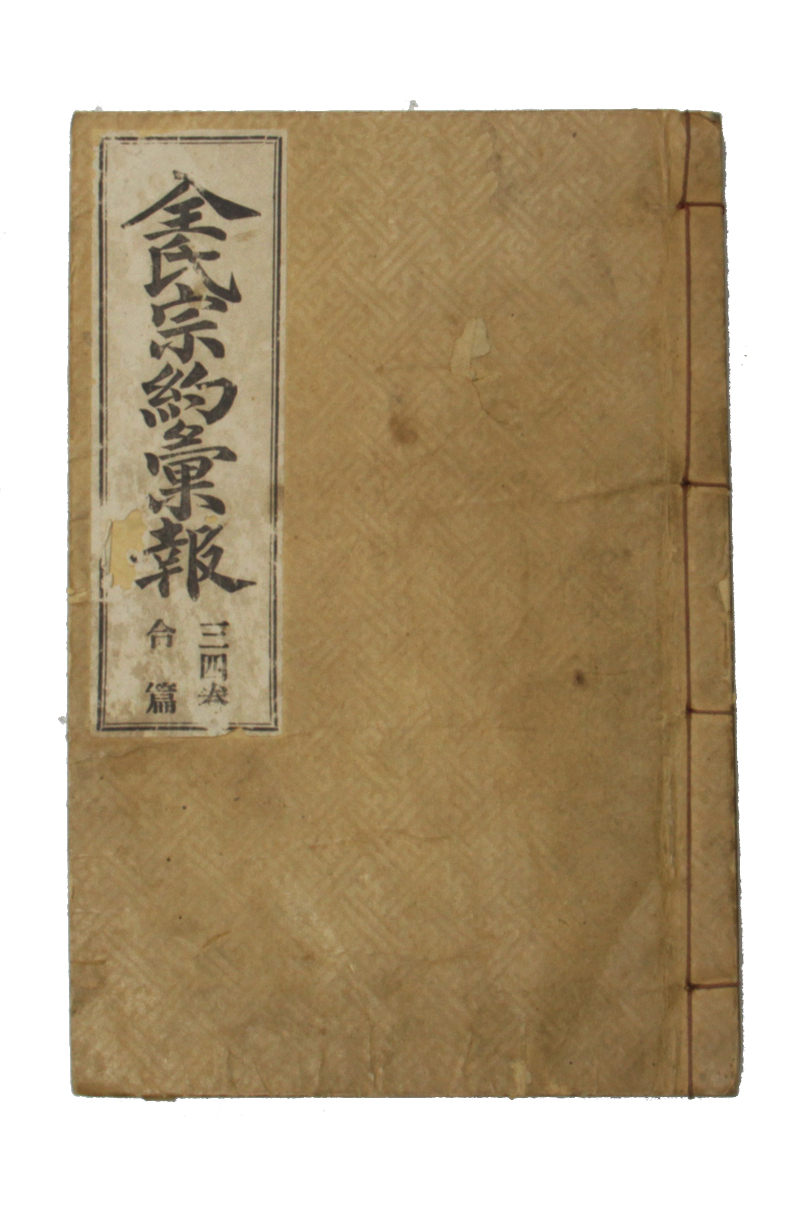 全氏宗約彙報
三四卷
合篇